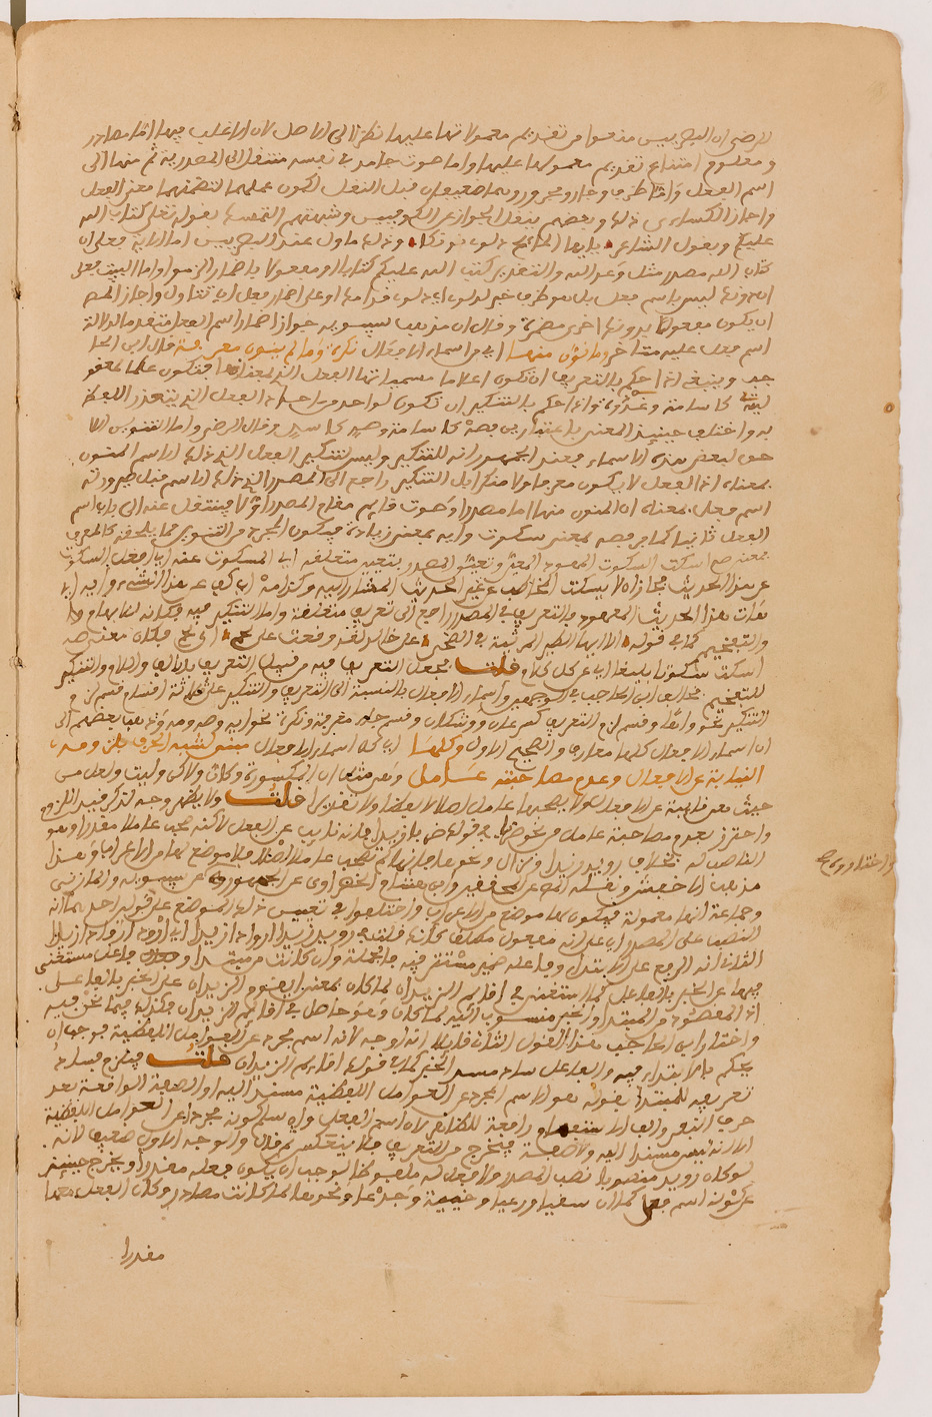 الرضي ان البصريين منعوا من تقديم معمولاتها عليها نظرا الى الاصل لان الاغلب فيها اما مصادر
ومعلوم امتناع تقديم معمولها عليها واما صوت جامد في نفسه منتقل الى المصدرية ثم منها الى
اسم الفعل واما ظرف وجار ومجرور وهما ضعيفان قبل النقل لكون عملهما لتضمنهما معنى الفعل
واجاز الكسائي ذلك وبعضهم ينقل الجواز عن الكوفيين وشبهتهم التمسك بقوله تعالى كتاب الله
عليكم وبقول الشاعر يا ايها المائح دلوي دونكا وذلك ماول عند البصريين اما الاية فعلى ان
كتاب الله مصدر مثل وعد الله والتقدير كتب الله عليكم كتابا او مفعولا باضمار الزموا واما البيت فعلى
ان دونك ليس باسم فعل بل هو ظرف خبر لدلوي اي دلوي قدامك او على اضمار فعل اي تناول واجاز
ان يكون مفعولا بدونك اخرى مضمرة وقال ان مذهب سيبويه جواز اضمار اسم الفعل متقدما لدلالة
اسم فعل عليه متاخر وما نون منها اي من اسماء الافعال نكرة وما لم ينون معرفة قال ابن
وينبغي اذا حكم بالتعريف ان تكون اعلاما مسمياتها الفعل الذي بمعناها فتكون علما لمعقو
كاسامة واذا حكم بالتنكير ان تكون لواحد من احاد الفعل الذي يتعدد اللفظ
به واختلف حينئذ المعنى باعتبارين فصه كاسامة وصه كاسد وقال الرضي واما التنوين اللا
حق لبعض هذه الاسماء فعند الجمهور انه للتنكير وليس لتنكير الفعل الذي ذلك الاسم المنون
بمعناه اذ الفعل لا يكون معرفا ولا منكرا بل التنكير راجع الى المصدر الذي ذلك الاسم قبل صيرورته
اسم فعل بمعناه لان المنون منها اما مصدر او صوت قايم مقام المصدر اولا فينتقل عنه الى باب اسم
الفعل ثانيا كما مر فصه بمعنى سكوتا وايه بمعنى زيادة فيكون المجرد من التنوين مما يلحقه كالمعرف
فمعنى صه اسكت السكوت المعهود المعين وتعيين المصدر بتعيين متعلقه اي المسكوت عنه اي افعل السكوت
عن هذا الحديث فجاز ان لا يسكت المخاطب عن غير الحديث المشار اليه وكذا مه اي كف عن هذا الشيء وايه اي
هات هذا الحديث المعهود فالتعريف في المصدر راجع الى تعريف متعلقه واما التنكير فيه فكانه للابهام
والتفخيم كما في قوله الا ايها الطير المربة في الضحى على خالد لقد وقعت على لحم اي لحم فكان معنى صه
اسكت سكوتا بليغا اي عن كل كلام قلت فجعل التعريف فيه من قبيل التعريف بالالف واللام والتنكير
للتفخيم فخالف ابن الحاجب في توجيهه واسماء الافعال بالنسبة الى التعريف والتنكير على ثلاثة اقسام قسم لزم
التنكير نحو واها وقسم لزم التعريف كنزال ووشكان وقسم جاء معرفة ونكرة نحو ايه وصه ومه وذهب بعضهم الى
ان اسماء الافعال كلها معارف والصحيح الاول وكلها اي كل اسماء الافعال مبني لشبه الحرف
النيابة عن الافعال وعدم مصاحبته عامل وهو مشابه ان المكسورة وكان ولكن وليت ولعل من
حيث هي نايبة عن الافعال ولا يصحبها عامل اصلا لا لفظا ولا تقديرا قلت ولا يظهر وجه لذكر قيد اللزوم
واحترز بعدم مصاحبة عامل من نحو ضربا في قولك ضربا زيدا فانه نايب عن الفعل لاكنه صحب عاملا مقدرا وهو
الناصب له بخلاف رويد زيدا ونزال ونحوهما فانها لم تصحب عاملا اصلا فلا موضع لها من الاعراب وهذا
مذهب الاخفش ونقله المص عن المحققين وابن هشام والخضراوي عن الجمهور عن سيبويه والمازني
وجماعة انها معمولة فيكون لها موضع من الاعراب واختلفوا في تعيين ذلك الموضع على قولين احدهما انه
النصب على المصدر اي على انه مفعول مطلق كانك قلت في رويد زيدا ارواد زيدا اي ارود ارواد زيد
الثاني انه الرفع على الابتداء وفاعله ضمير مستتر فيه فالجملة وان كانت من مبتدا وفاعل مستغنى
فيها عن الخبر بالفاعل كما استغنى في اقايم الزيدان لما كان بمعنى ايقوم الزيدان عن الخبر بالفاعل
اذ المقصود من المبتدا والخبر منسوب اليه كما كان وهو حاصل في اقايم الزيدان فكذلك فيما نحن فيه
واختار ابن الحاجب هذا القول الثاني قايلا انه اوجه لانه اسم مجرد عن العوامل اللفظية فوجب ان
يحكم بالابتداء فيه والفاعل ساد مسد الخبر كما في قولك اقايم الزيدان قلت فيلزم فساد
تعريفه للمبتدا بقوله هو الاسم المجرد عن العوامل اللفظية مسندا اليه او الصفة الواقعة بعد
حرف النفي والف الاستفهام رافعة للظاهر لان اسم الفعل وان سلم كونه مجردا عن العوامل اللفظية
الا انه ليس مسندا اليه ولا صفة فيخرج من التعريف فلا ينعكس ثم قال والوجه الاول ضعيف لانه
لو كان رويد منصوبا نصب المصدر والافعل له ملفوظا لوجب ان يكون فعله مقدرا ويخرج حينئذ
عن كونه اسم فعل كما ان سقيا ورعيا وخيبة وجدعا ونحوها لما كانت مصادر وكان الفعل معها
مقدرا